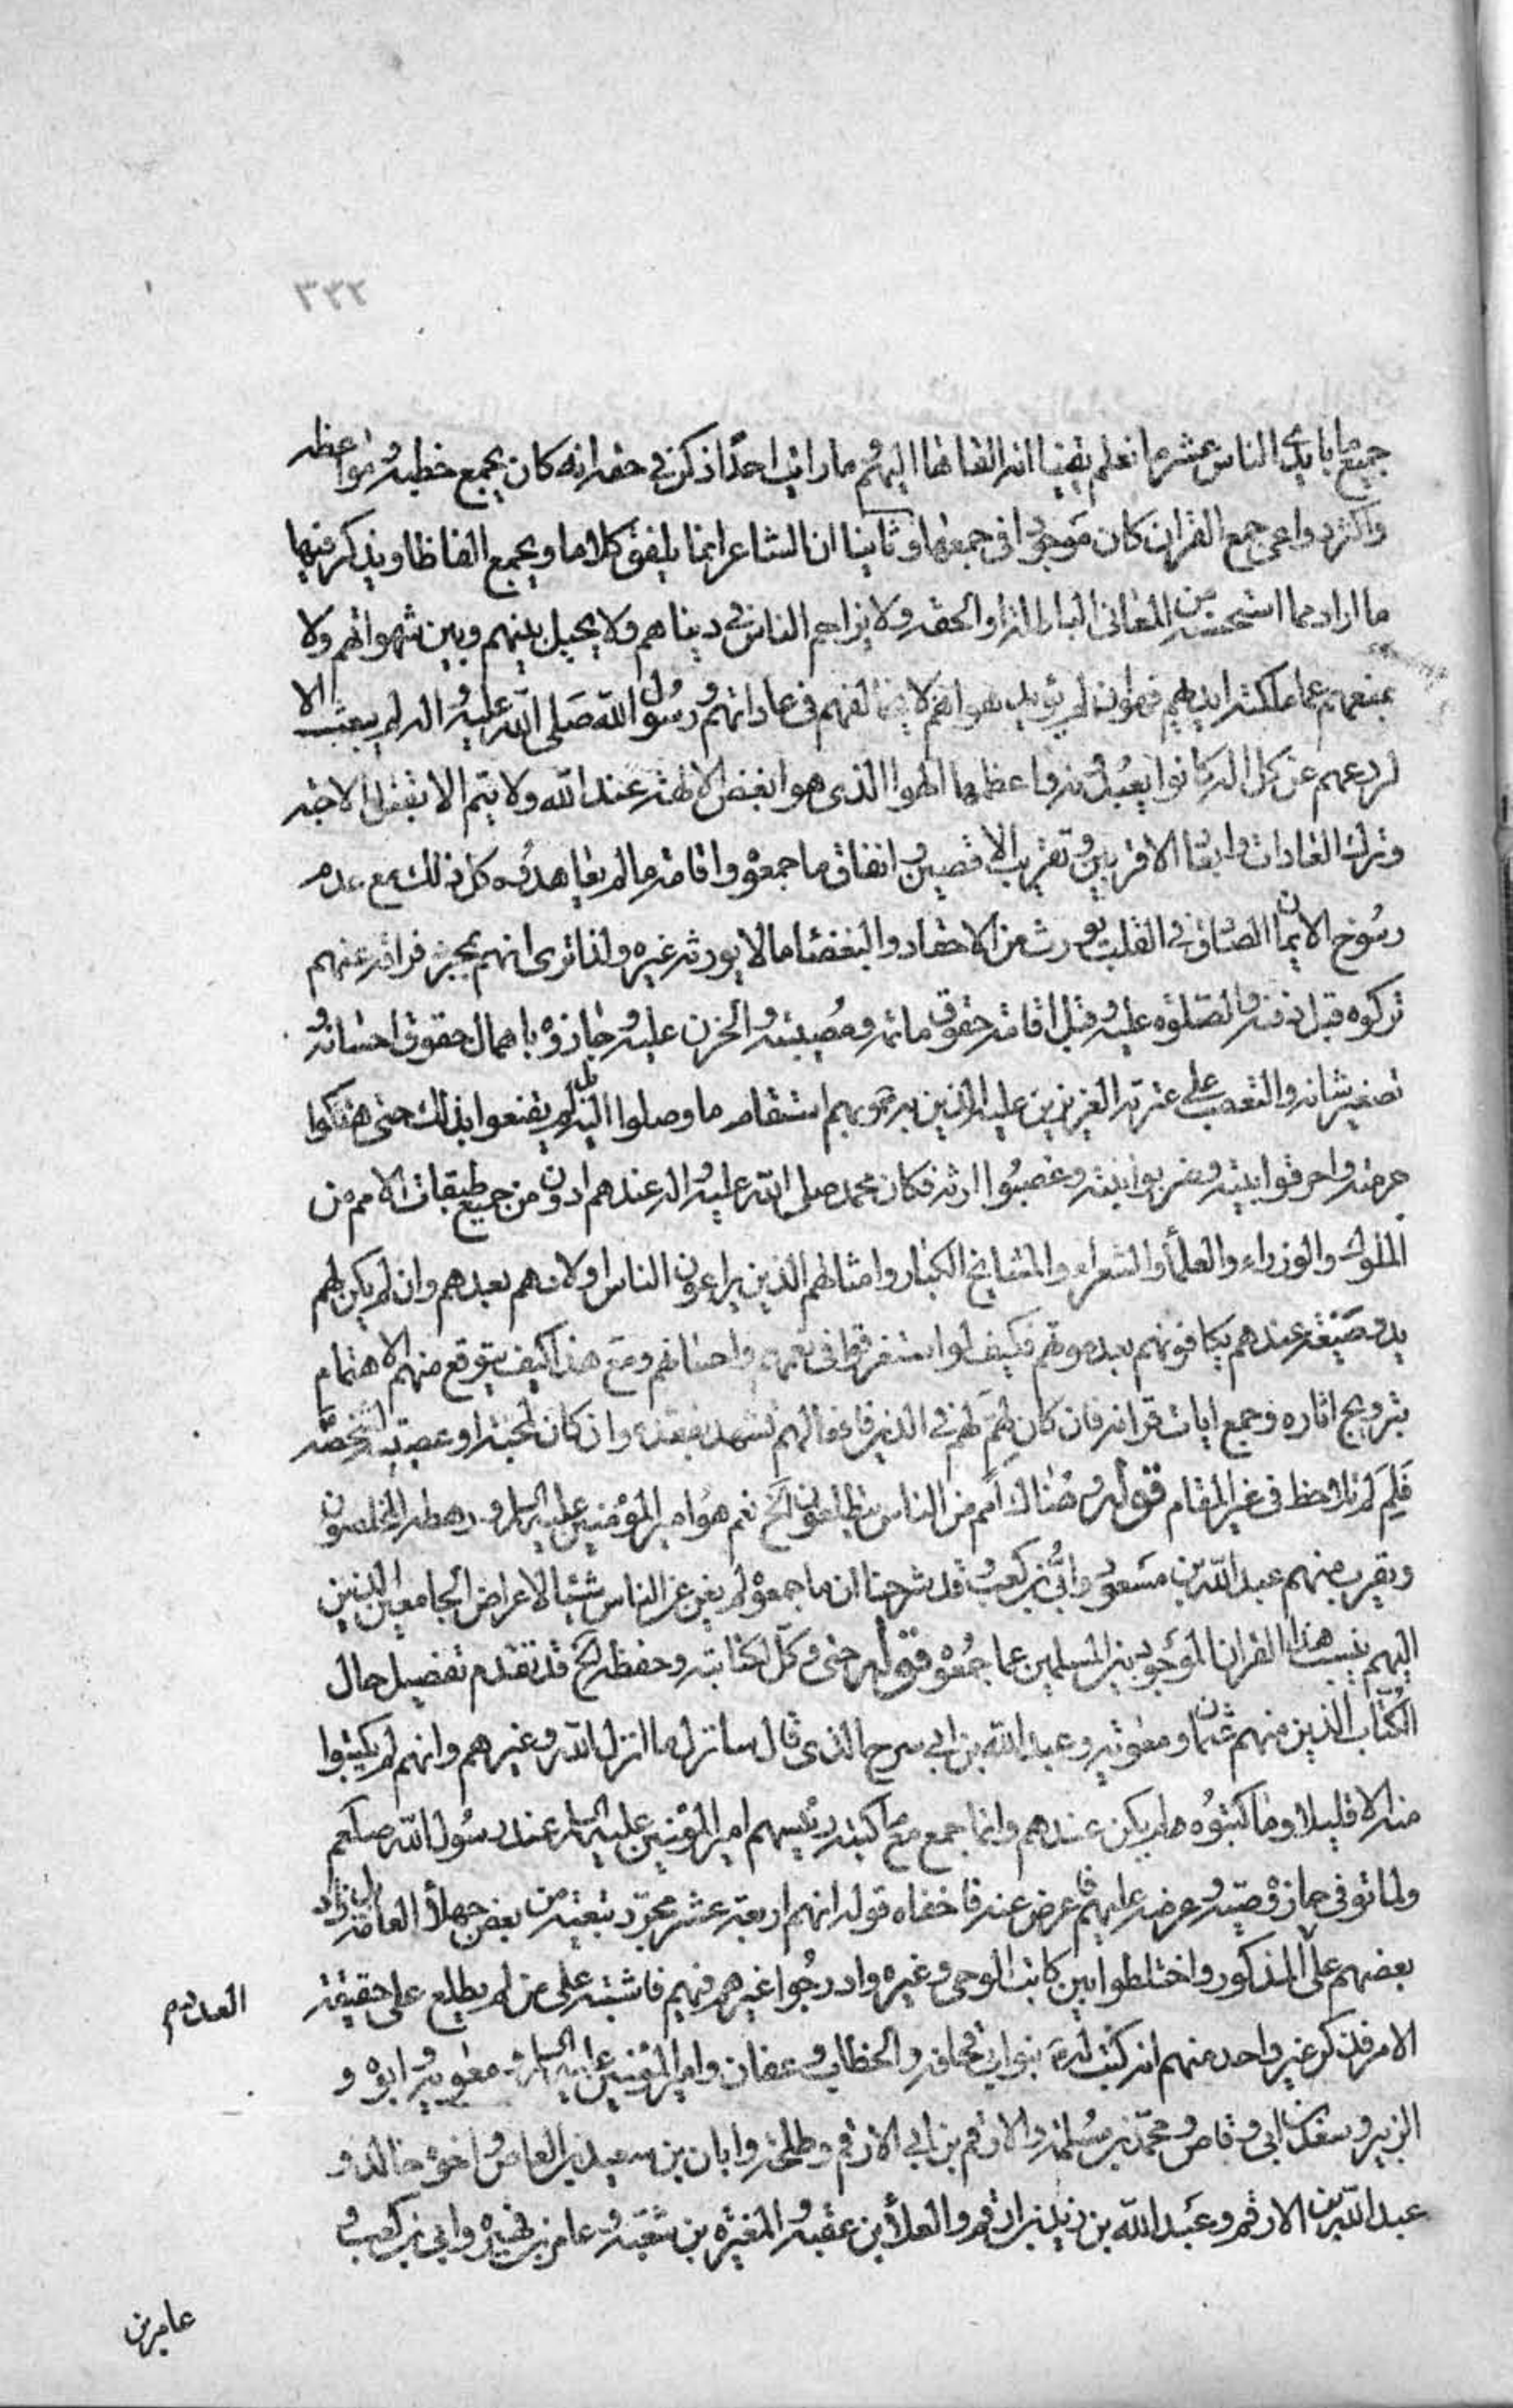 ٣٣٢
جميع ما بايدى الناس عشر ما نعلم يقينا انه القاها اليهم وما رايت احدًا ذكر فى حقه انه كان يجمع خطبه ومواعظه
واكثر دواعى جمع القران كان موجودا فى جمعها وثانيا ان الشاعر انما يلفق كلاما ويجمع الفاظا ويذكر فيها
ما اراد مما استحسنه من المعانى الباطلة او الحقه ولا يزاحم الناس فى دنياهم ولا يحيل بينهم وبين شهواتهم ولا
يمنعهم عما ملكته ايديهم فهو ان لم يؤيد هواهم لا يخالفهم فى عاداتهم ورسول الله صلى الله عليه واله لم يبعث الا
لردعهم عن كل اله كانوا يعبدونه واعظمها الهوا الذى هو ابغض الالهة عند الله ولا يتم الا بقتل الاحبه
وترك العادات وابعاد الاقربين وتقريب الاقصين وانفاق ما جمعوه واقامة ما لم يعاهدوه كل ذلك مع عدم
رسوخ الايمان الصادق فى القلب يورث من الاحقاد والبغضا ما لا يورثه غيره ولذا ترى انهم بمجرد فراقه عنهم
تركوه قبل دفنه والصلوة عليه وقبل اقامة حقوق ماتمه ومصيبته والحزن عليه وجازوه باهمال حقوق احسانه و
تصغير شانه والتعصب على عترته العزيزين عليه الذين ببرهم استقام ما وصلوا اليه بل لم يقنعوا بذلك حتى هتكوا
حرمته واحرقوا بيته وضربوا بنته وغصبوا ارثه فكان محمد صلى الله عليه واله عندهم ادون من جميع طبقات الامم من
الملوك والوزراء والعلماء والشعراء والمشايخ الكبار وامثالهم الذين يراعون الناس اولادهم بعدهم وان لم يكن لهم
يد وصنيعة عندهم يكافونهم بعد موتهم فكيف لو استغرقوا فى نعمهم واحسانهم ومع هذا كيف يتوقع منهم الاهتمام
بترويج اثاره وجمع ايات قرانه فان كان لهمّ لهم فى الدين فافعالهم تشهد بفقده وان كان لمحبته او عصبية لشخصه
فلم لم تلاحظ فى غير المقام قوله وهناك امم من الناس يتطلعون الخ نعم هو امير المؤمنين عليه السلم ورهطه المخلصون
ويقرب منهم عبد الله بن مسعود وابى بن كعب وقد شرحنا ان ما جمعوه لم يغن عن الناس شيئا لاعراض الجامعين الذين
اليهم ينسب هذا القران الموجود بين المسلمين عما جمعوه قوله حتى وكل لكتابته وحفظه الخ قد تقدم تفصيل حال
الكتاب الذين منهم عثمان ومعوية وعبد الله بن ابى سرح الذى قال سانزل ما انزل الله وغيرهم وانهم لم يكتبوا
منه الا قليلا وما كتبوه لم يكن عندهم وانما جمع مع ما كتبه رئيسهم امير المؤمنين عليه السلم عند رسول الله صلعم
ولما توفى حازه وصيه وعرضه عليهم فاعرض عنه فاخفاه قوله انهم اربعة عشر مجرد تبعية من بعض جهلاء العامة بل زاد
بعضهم على المذكور واختلطوا بين كاتب الوحى وغيره وادرجوا غيرهم فيهم فاشتبه على من لم يطلع على حقيقة
العديم
الامر فذكر غير واحد منهم انه كتب له بنو ابى قحافه والخطاب وعفان وامير المؤمنين عليه السلم ومعوية وابوه و
الزبير وسعد بن ابى وقاص ومحمد بن مسلمة والارقم بن ابى الارقم وطلحة وابان بن سعيد بن العاص واخوه خالد و
عبد الله بن الارقم وعبد الله بن زيد بن ارقم والعلاء بن عقبه والمغيرة بن شعبة وعامر بن فهيرة وابى بن كعب و
عامر بن